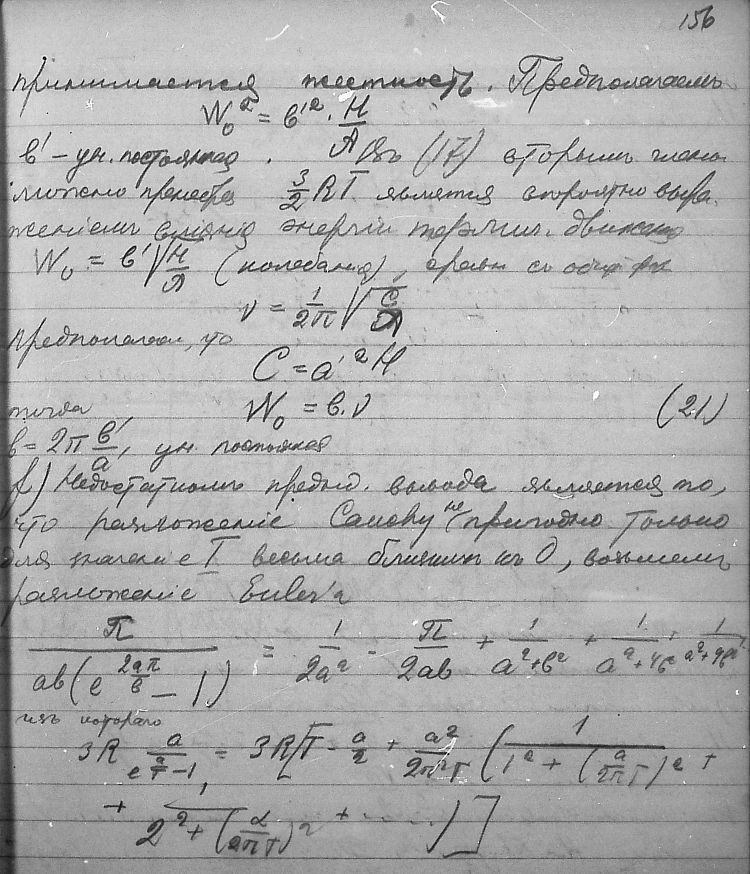 156
принимается жесткость. Предполагаемъ
W₀² = в'² · H/A
в' – ун. постоянная. Въ (17) вторымъ члены
можно пренебр 3/2 RT является вѣроятно выра-
женіемъ энергіи термич. движенія
W₀ = в' √(H/A) (колебанія), сравн съ
ν = 1/2π √(C/A)
предполагаем, что
C = a'² H
тогда W₀ = в.ν (21)
в = 2π в'/a', ун. постоянная
f) Недостаткомъ предыд. вывода является то,
что разложеніе Cauchy не пригодно только
для значеніе T весьма близкихъ къ 0, возьмемъ
разложеніе Euler'a
π / ab(e^(2aπ/в) – 1) = 1/2a² - π/2ab + 1/(a²+в²) + 1/(a²+4в²) + 1/(a²+9в²)
изъ котораго
3R a/(e^(a/T) – 1) = 3R[T - a/2 + a²/2π²T (1/(1² + (a/2πT)²) +
+ 1/(2² + (a/2πT)²) + ......)]